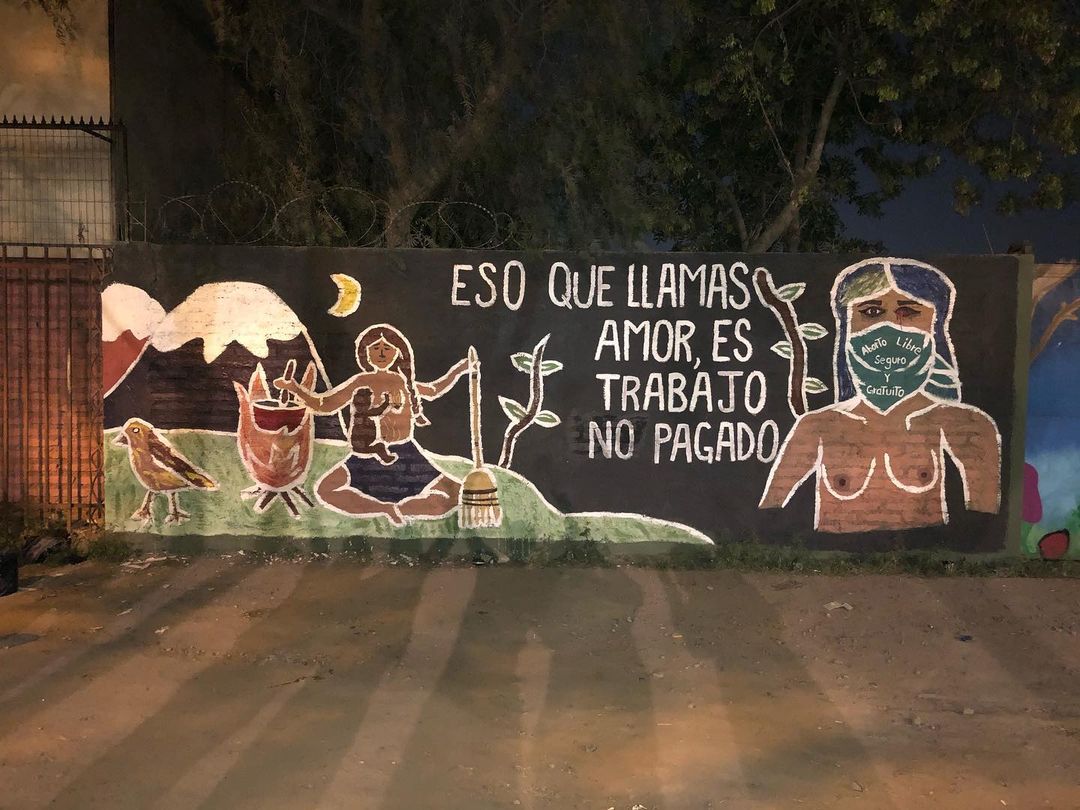 ESO QUE LLAMAS
AMOR, ES
TRABAJO
NO PAGADO
Aborto Libre
Seguro
Y
Gratuito